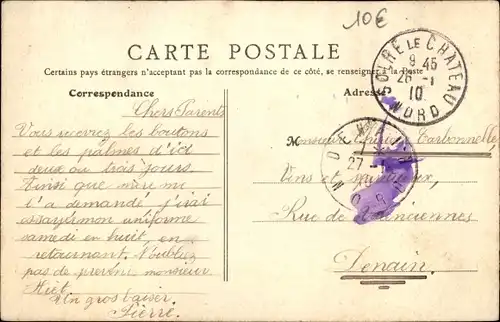 10€
CARTE POSTALE
Certains pays étrangers n'acceptant pas la correspondance de ce côté, se renseigner à la Poste
Correspondance
Adresse
SOLRE LE CHATEAU
9 45
26 - 1
10
NORD
Chers Parents
Vous recevrez les boutons
et les palmes d'ici
deux ou trois jours.
Ainsi que mère me
l'a demandé j'irai
essayer mon uniforme
samedi en huit, en
retournant. N'oubliez
pas de prévenir monsieur
Hiet.
Un gros baiser.
Pierre.
DENAIN
27 -
NORD
Monsieur Carbonnelle
Vins et spiritueux,
Rue de Valenciennes
Denain.